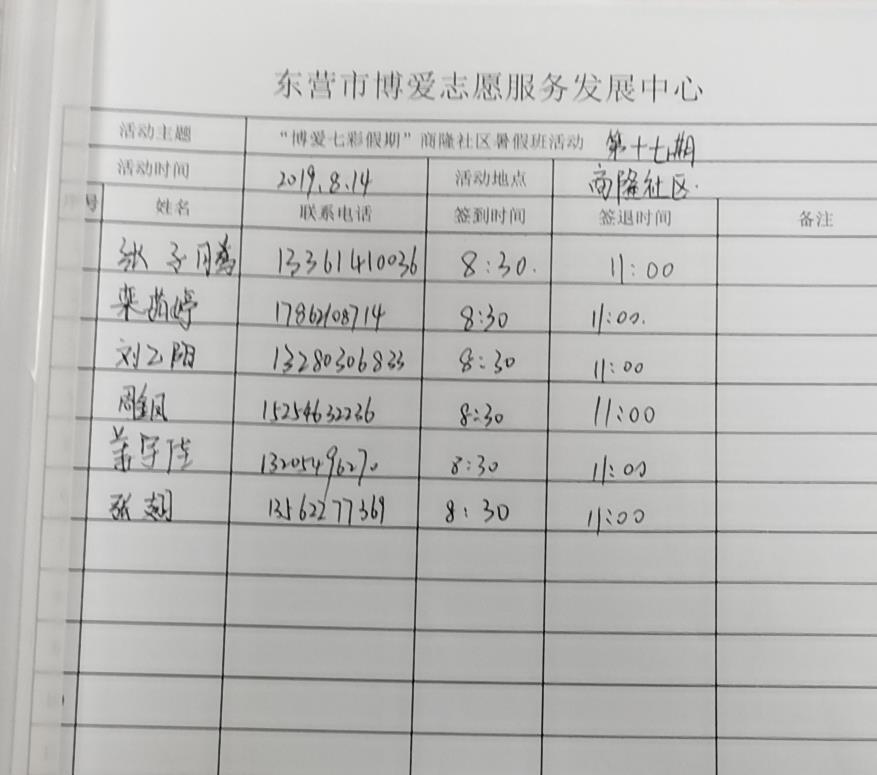 东营市博爱志愿服务发展中心
活动主题 “博爱七彩假期”商隆社区暑假班活动 第十七期
活动时间 2019.8.14 活动地点 商隆社区.
序号 姓名 联系电话 签到时间 签退时间 备注
张子 13361410036 8:30. 11:00
栾茜婷 17862108714 8:30 11:00.
刘乙阳 13280306833 8:30 11:00
15254632236 8:30 11:00
1320549627 8:30 11:00
张翅 13562277369 8:30 11:00